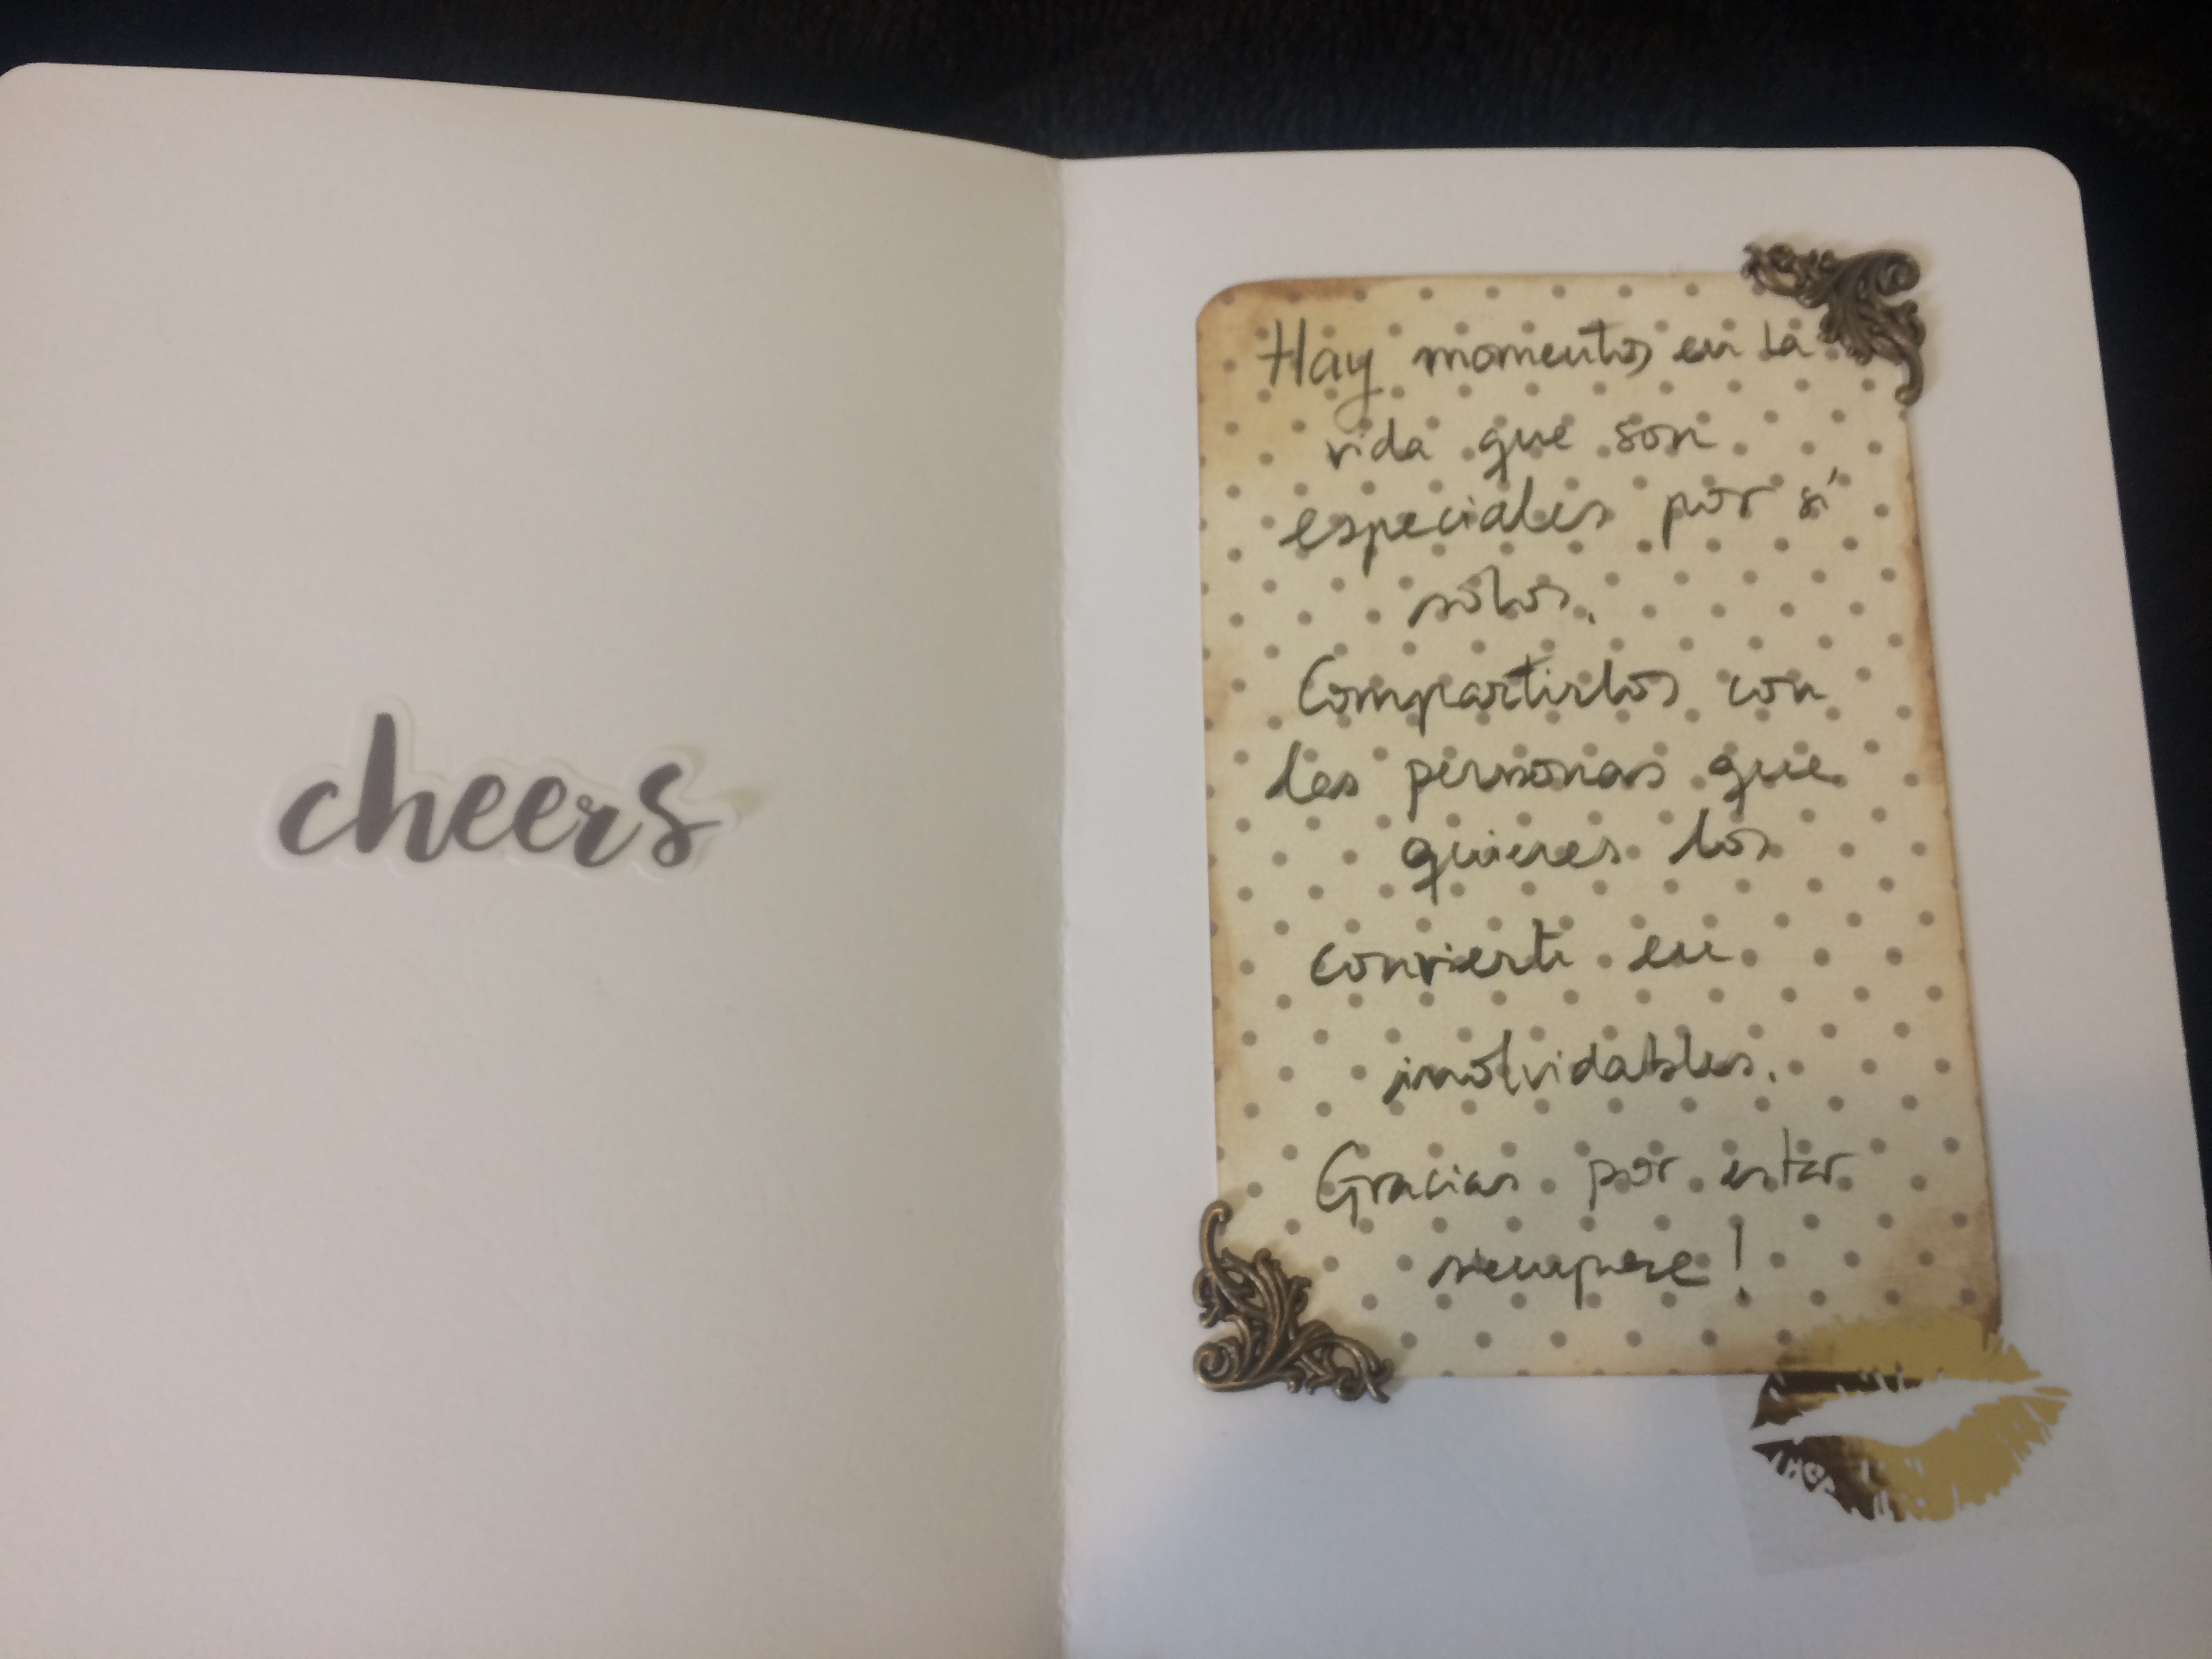 cheers
Hay momentos en la
vida que son
especiales por sí
solos.
Compartirlos con
las personas que
quieres los
convierte en
inolvidables.
Gracias por estar
siempre!